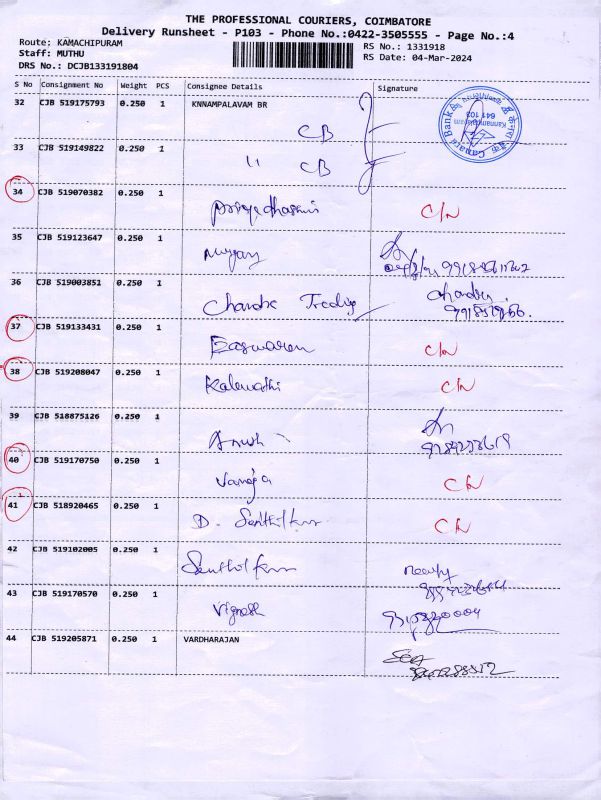 THE PROFESSIONAL COURIERS, COIMBATORE
Delivery Runsheet - P103 - Phone No.:0422-3505555 - Page No.:4
Route: KAMACHIPURAM
RS No.: 1331918
Staff: MUTHU
RS Date: 04-Mar-2024
DRS No.: DCJB133191804
S No Consignment No Weight PCS Consignee Details Signature
32 CJB 519175793 0.250 1 KNNAMPALAVAM BR
CB
Canara Bank
641 103
33 CJB 519149822 0.250 1
" CB
34 CJB 519070382 0.250 1
Priyadharsini C/N
35 CJB 519123647 0.250 1
Murugan
36 CJB 519003851 0.250 1
Chandra Trading Chandru
37 CJB 519133431 0.250 1
Easwaran C/N
38 CJB 519208047 0.250 1
Kalavathi C/N
39 CJB 518875126 0.250 1
40 CJB 519170750 0.250 1
Vanaja C/N
41 CJB 518920465 0.250 1
D. Senthilkumar C/N
42 CJB 519102005 0.250 1
Senthilkumar
43 CJB 519170570 0.250 1
Vignesh
44 CJB 519205871 0.250 1 VARDHARAJAN